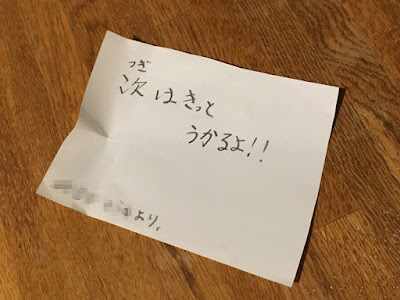 つぎ
次はきっと
うかるよ!!
より。